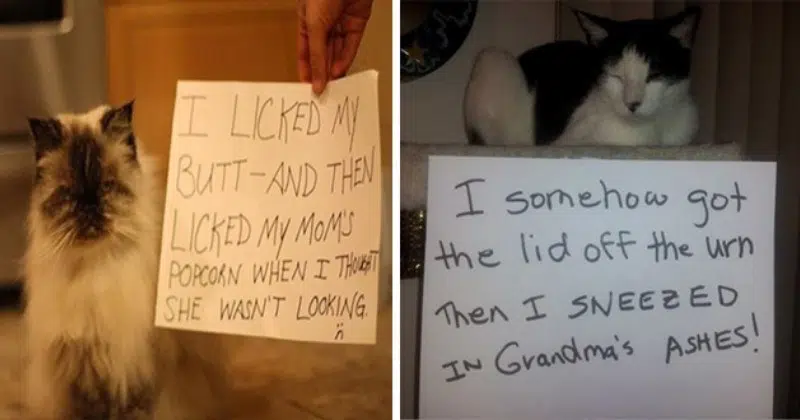 I LICKED MY
BUTT-AND THEN
LICKED MY MOM'S
POPCORN WHEN I THOUGHT
SHE WASN'T LOOKING.
:(
I somehow got
the lid off the urn
Then I SNEEZED
IN Grandma's ASHES!